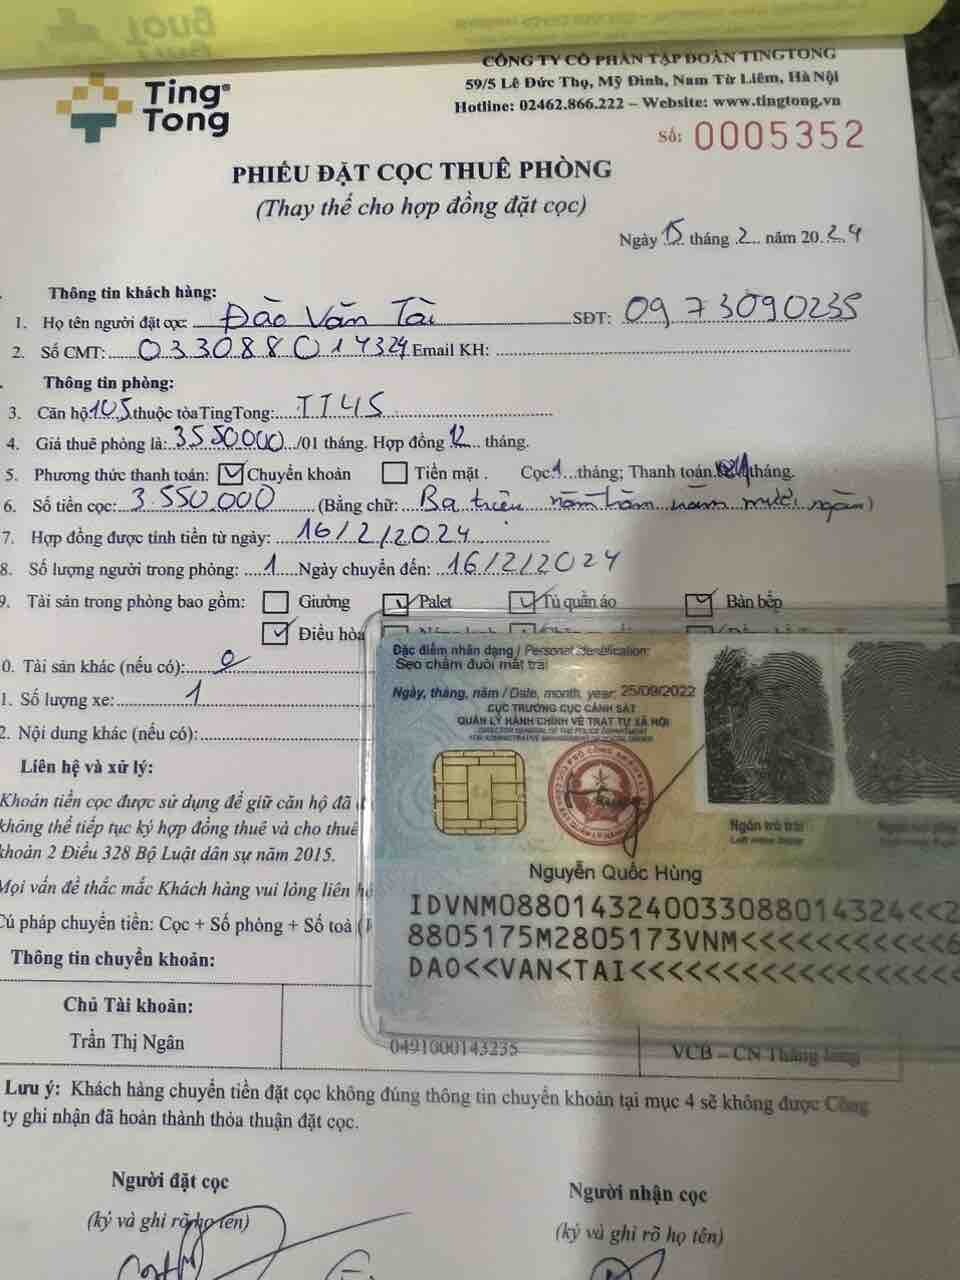 Ting Tong
CÔNG TY CỔ PHẦN TẬP ĐOÀN TINGTONG
59/5 Lê Đức Thọ, Mỹ Đình, Nam Từ Liêm, Hà Nội
Hotline: 02462.866.222 – Website: www.tingtong.vn
Số: 0005352
PHIẾU ĐẶT CỌC THUÊ PHÒNG
(Thay thế cho hợp đồng đặt cọc)
Ngày 15 tháng 2 năm 2024
Thông tin khách hàng:
1. Họ tên người đặt cọc: Đào Văn Tài SĐT: 0973090235
2. Số CMT: 033088014324 Email KH:
Thông tin phòng:
3. Căn hộ 105 thuộc tòa TingTong: TT45
4. Giá thuê phòng là: 3550000/01 tháng. Hợp đồng 12 tháng.
5. Phương thức thanh toán: Chuyển khoản Tiền mặt. Cọc 1 tháng; Thanh toán tháng.
6. Số tiền cọc: 3.550.000 (Bằng chữ: Ba triệu năm trăm năm mươi ngàn)
7. Hợp đồng được tính tiền từ ngày: 16/2/2024
8. Số lượng người trong phòng: 1 Ngày chuyển đến: 16/2/2024
9. Tài sản trong phòng bao gồm: Giường Palet Tủ quần áo Bàn bếp
Điều hòa
0. Tài sản khác (nếu có): 0
1. Số lượng xe: 1
2. Nội dung khác (nếu có):
Liên hệ và xử lý:
Khoản tiền cọc được sử dụng để giữ căn hộ đã
không thể tiếp tục ký hợp đồng thuê và cho thuê
khoản 2 Điều 328 Bộ Luật dân sự năm 2015.
Mọi vấn đề thắc mắc Khách hàng vui lòng liên hệ
Cú pháp chuyển tiền: Cọc + Số phòng + Số toà (
Thông tin chuyển khoản:
Chủ Tài khoản:
Trần Thị Ngân 0491000143235 VCB – CN Thăng long
Đặc điểm nhân dạng / Personal identification:
Sẹo chấm đuôi mắt trái
Ngày, tháng, năm / Date, month, year: 25/09/2022
CỤC TRƯỞNG CỤC CẢNH SÁT
QUẢN LÝ HÀNH CHÍNH VỀ TRẬT TỰ XÃ HỘI
DIRECTOR GENERAL OF THE POLICE DEPARTMENT
FOR ADMINISTRATIVE MANAGEMENT OF SOCIAL ORDER
Ngón trỏ trái
Nguyễn Quốc Hùng
IDVNM0880143240033088014324<<2
8805175M2805173VNM<<<<<<<<<<<6
DAO<<VAN<TAI<<<<<<<<<<<<<<<<<<
Lưu ý: Khách hàng chuyển tiền đặt cọc không đúng thông tin chuyển khoản tại mục 4 sẽ không được Công
ty ghi nhận đã hoàn thành thỏa thuận đặt cọc.
Người đặt cọc
(ký và ghi rõ họ tên)
Người nhận cọc
(ký và ghi rõ họ tên)